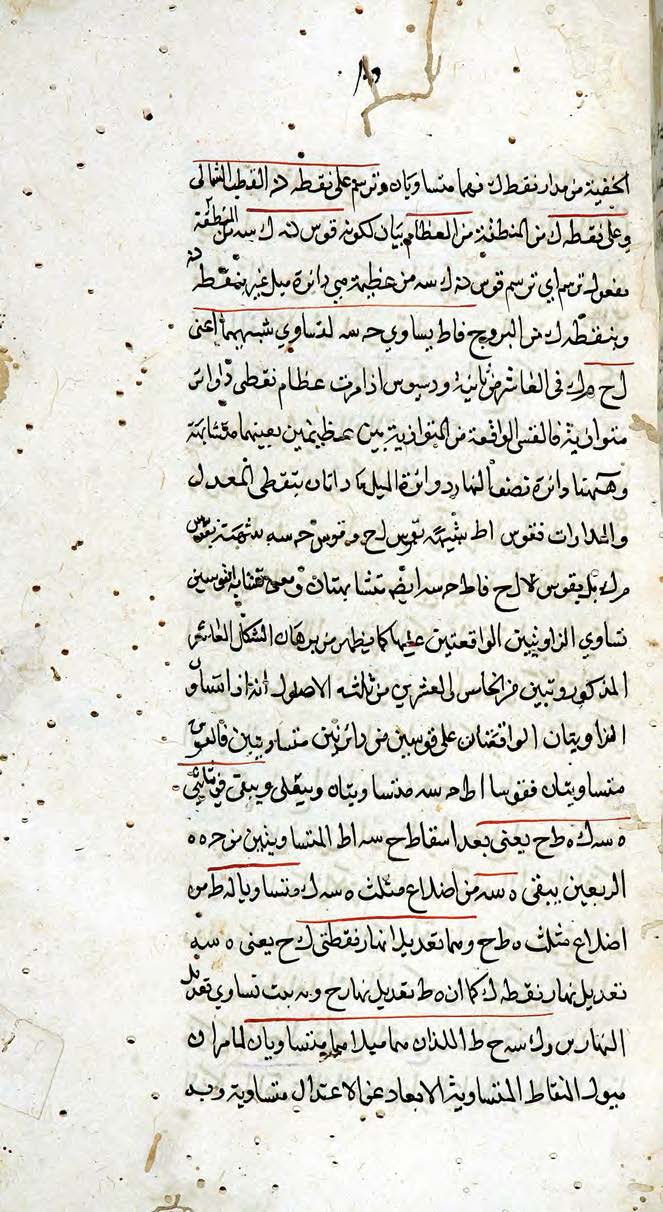 الخفية من مدار نقطة ك فهما متساويان ونرسم على نقطة د القطب الشمالي
وعلى نقطة ك من المنطقة من العظام بيان لكونه قوس د ك سه من المنطقة
مفعول نرسم اي نرسم قوس د ك سه من عظيمة هي دائرة ميل غير بنقطة د
وبنقطة ك من البروج فاط يساوي ح سه لتساوي شبيهيهما اعني
ل ح م ك في العاشر من ثانية اذا مرت عظام نقطي دوائر
متوازية فالقسي الواقعة من المتوازية بين عظيمتين بعينهما متشابهة
وههنا دائرة نصف النهار ودائرة الميل مارتان بنقطي المعدل
والمدارات فقوس اط شبيهة بقوس ل ح وقوس ح سه شبيهة بقوس
م ك بل بقوس ل ح فاط ح سه ايضا متشابهتان ومعنى تشابه القوسين
تساوي الزاويتين الواقعتين عليهما كما يظهر من برهان الشكل العاشر
المذكور وتبين من الخامس والعشرين من ثالثة الاصول انه اذا تساو
الزاويتان الواقعتان على قوسين من دائرتين متساويتين فالقوس
متساويتان فقوسا اط ح سه متساويتان ويبقى في مثلثي
ه سه ك ه ط ح يعني بعد اسقاط ح سه اط المتساويتين من ح ه ه
الربعين يبقى ه سه من اضلاع مثلث ه سه ك متساويا له ط من
اضلاع مثلث ه ط ح وهما تعديلا نهار نقطتي ك ح يعني ه سه
تعديل نهار نقطة ك كما ان ه ط تعديل نهار ح وبه يثبت تساوي تعديل
النهارين وك سه ح ط اللذان هما ميلاهما متساويان لما مر ان
ميول النقاط المتساوية الابعاد عن الاعتدال متساوية وبه